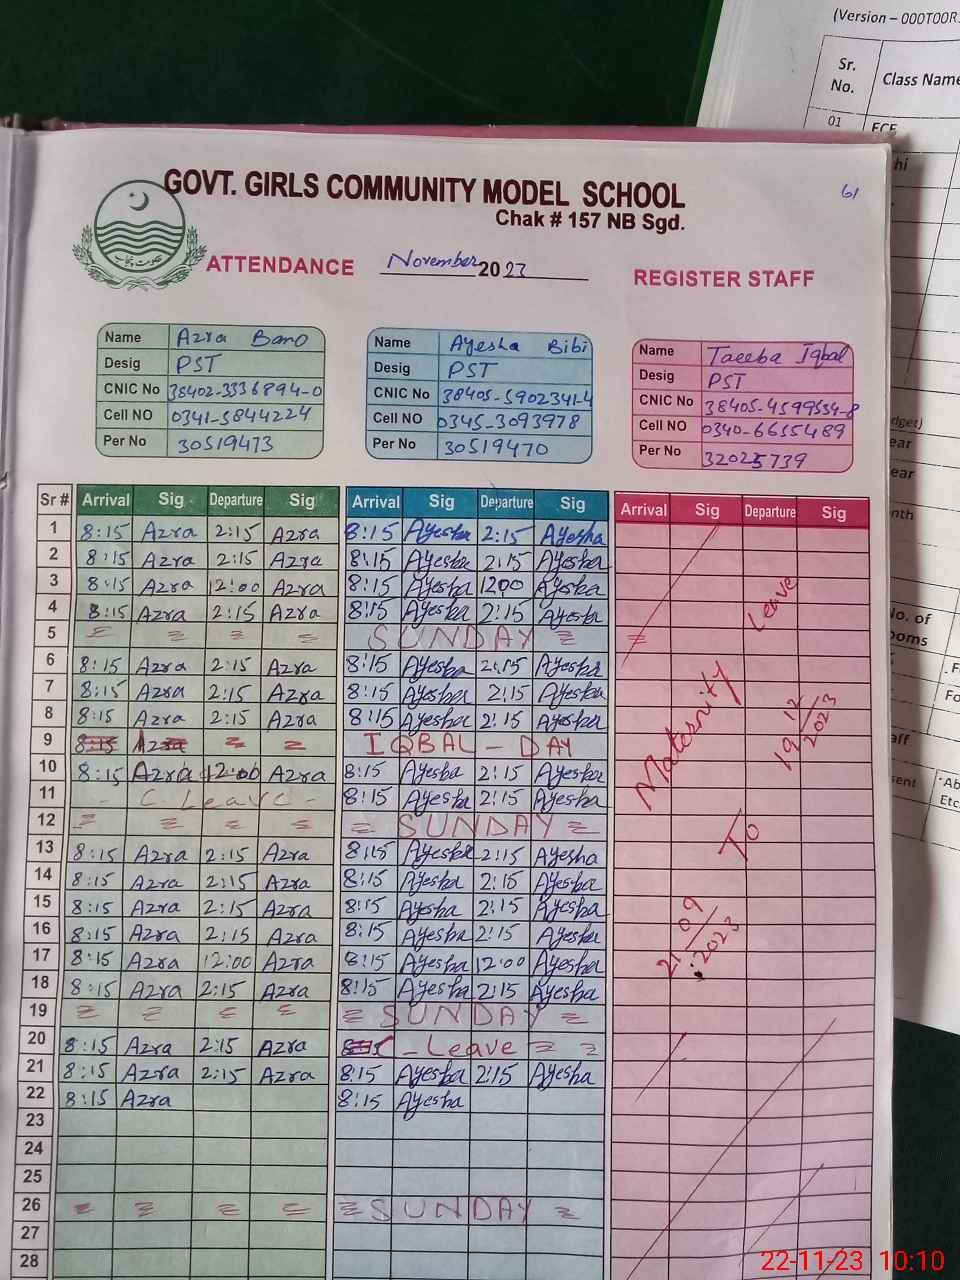 (Version – 000T00R
Sr. No. Class Name
01 ECE
61
GOVT. GIRLS COMMUNITY MODEL SCHOOL
Chak # 157 NB Sgd.
حکومت پنجاب
ATTENDANCE November 2023 REGISTER STAFF
Name Azra Bano
Desig PST
CNIC No 38402-3336894-0
Cell NO 0341-5844224
Per No 30519473
Name Ayesha Bibi
Desig PST
CNIC No 38405-5902341-4
Cell NO 0345-3093978
Per No 30519470
Name Taeeba Iqbal
Desig PST
CNIC No 38405-4599534-8
Cell NO 0340-6655489
Per No 32025739
Sr # Arrival Sig Departure Sig Arrival Sig Departure Sig Arrival Sig Departure Sig
1 8:15 Azra 2:15 Azra 8:15 Ayesha 2:15 Ayesha
2 8:15 Azra 2:15 Azra 8:15 Ayesha 2:15 Ayesha
3 8:15 Azra 12:00 Azra 8:15 Ayesha 1200 Ayesha
4 8:15 Azra 2:15 Azra 8:15 Ayesha 2:15 Ayesha
5 SUNDAY
6 8:15 Azra 2:15 Azra 8:15 Ayesha 2:15 Ayesha
7 8:15 Azra 2:15 Azra 8:15 Ayesha 2:15 Ayesha
8 8:15 Azra 2:15 Azra 8:15 Ayesha 2:15 Ayesha
9 8:15 Azra IQBAL - DAY
10 8:15 Azra 12:00 Azra 8:15 Ayesha 2:15 Ayesha
11 - C. Leave - 8:15 Ayesha 2:15 Ayesha
12 SUNDAY
13 8:15 Azra 2:15 Azra 8:15 Ayesha 2:15 Ayesha
14 8:15 Azra 2:15 Azra 8:15 Ayesha 2:15 Ayesha
15 8:15 Azra 2:15 Azra 8:15 Ayesha 2:15 Ayesha
16 8:15 Azra 2:15 Azra 8:15 Ayesha 2:15 Ayesha
17 8:15 Azra 12:00 Azra 8:15 Ayesha 12:00 Ayesha
18 8:15 Azra 2:15 Azra 8:15 Ayesha 2:15 Ayesha
19 SUNDAY
20 8:15 Azra 2:15 Azra 8:15 - Leave
21 8:15 Azra 2:15 Azra 8:15 Ayesha 2:15 Ayesha
22 8:15 Azra 8:15 Ayesha
23
24
25
26 SUNDAY
27
28
Maternity Leave
21/09/2023 To 19/12/2023
22-11-23 10:10